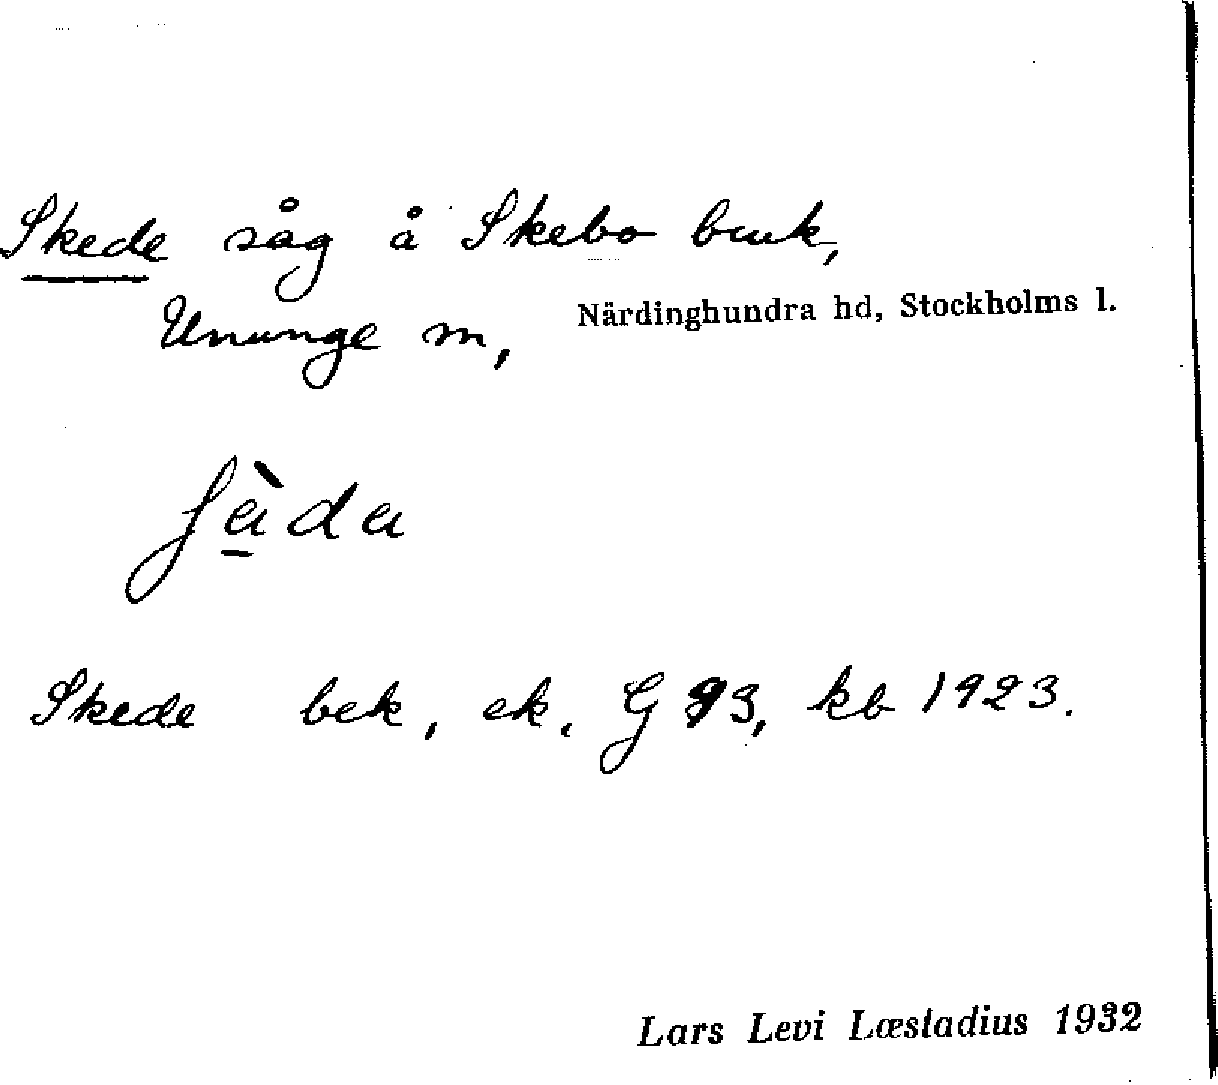 Skede såg å Skebo bruk,
Ununge sn, Närdinghundra hd, Stockholms l.
Skede bek, ek. G 93, kb 1923.
Lars Levi Læstadius 1932